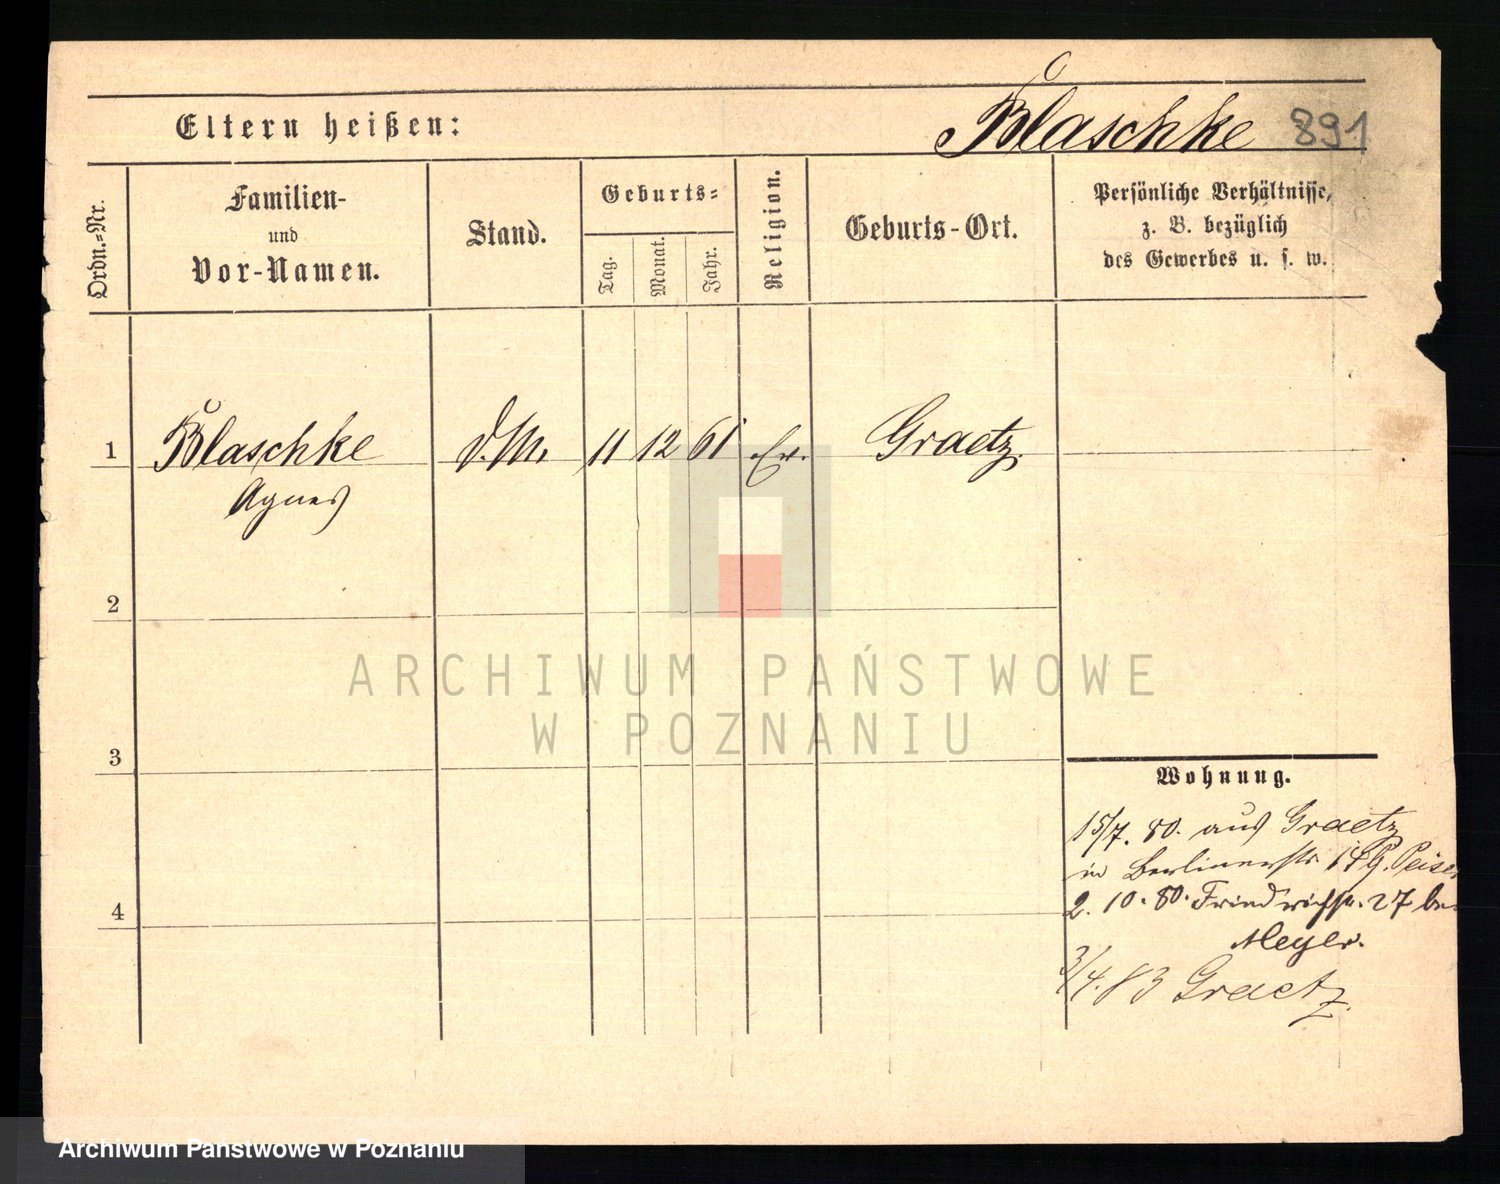 Eltern heißen:
Blaschke 891
Ordn.-Nr.
Familien-
und
Vor-Namen.
Stand.
Geburts-
Tag.
Monat.
Jahr.
Religion.
Geburts-Ort.
Persönliche Verhältnisse,
z. B. bezüglich
des Gewerbes u. s. w.
1 Blaschke D.M. 11 12 61 Ev. Graetz.
Agnes
2
3
4
Wohnung.
15/7. 80. aus Graetz
in Berlinerstr 14 Peiser
2. 10. 80. Friedrichstr. 27 bei
Meyer.
3/4. 83 Graetz.
ARCHIWUM PAŃSTWOWE
W POZNANIU
Archiwum Państwowe w Poznaniu